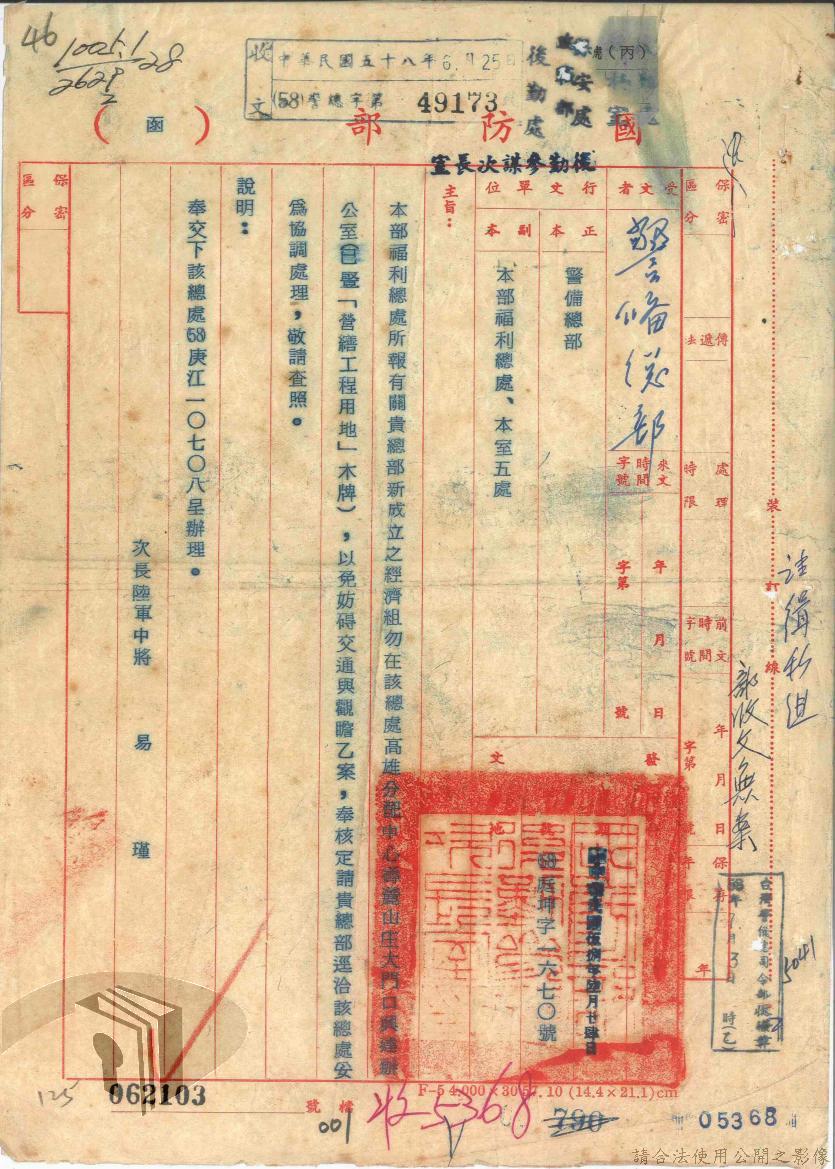 46
1005.1
2629
2
28
收文
中華民國五十八年6月25日
(58)警總字第 49173
後勤處
保安處
處(丙)
國防部
(函)
後勤參謀次長室
保密區分
受文者
警備總部
傳遞法
處理時限
來文時間字號
年 月 日
字第 號
前文時間字號
年 月 日
字第 號
保存年限
年
裝訂線
請緝私組
部收文無案
行文單位
正本
警備總部
副本
本部福利總處、本室五處
發文
58庭坤字一六七〇號
主旨:
本部福利總處所報有關貴總部新成立之經濟組勿在該總處高雄分配中心壽麓山庄大門口興建辦
公室(曁「營繕工程用地」木牌),以免妨碍交通與觀瞻乙案,奉核定請貴總部逕洽該總處妥
爲協調處理,敬請查照。
說明:
奉交下該總處58庚江一〇七〇八呈辦理。
次長陸軍中將 易 瑾
保密區分
58年7月3日 時
5041
125
062103
檔號
001
收5368
F-5 4.000×30 57.10 (14.4×21.1)cm
790
05368
請合法使用公開之影像